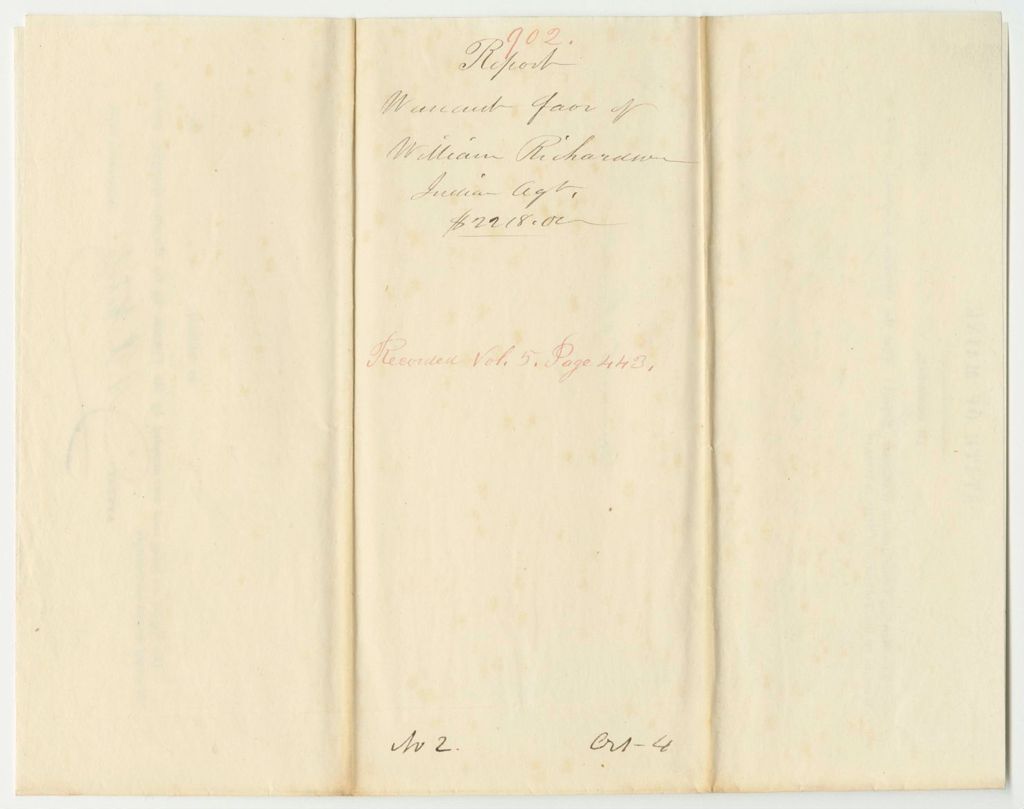 902.
Report
Warrant favor of
William Richardson
Indian Agt.
$2218.00
Recorded Vol. 5. Page 443.
No 2. Oct 4